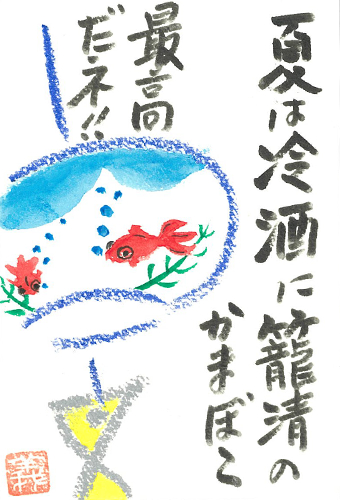 夏は冷酒に籠清の
かまぼこ
最高
だネ!!